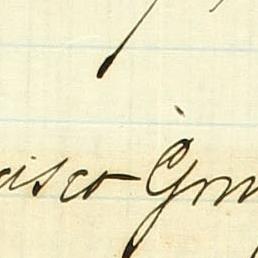 cisco Gm